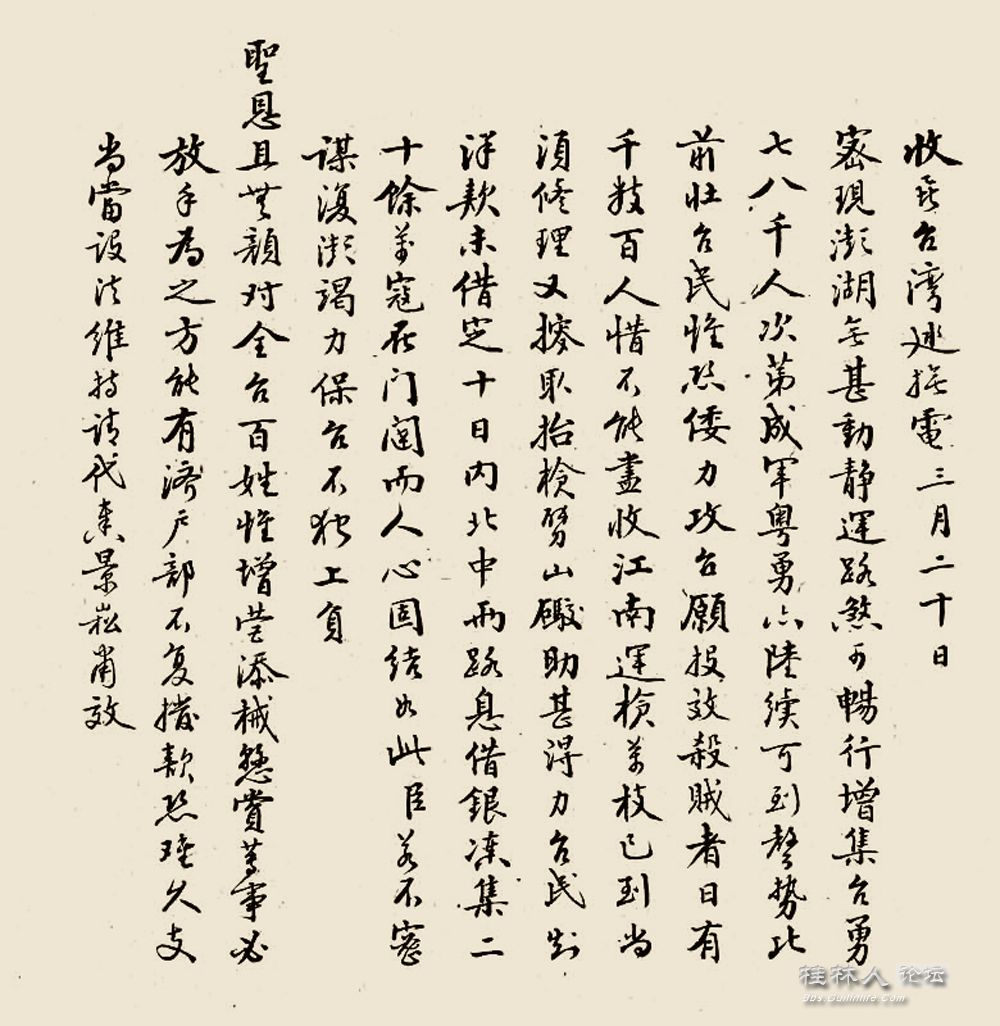 收台灣巡撫電三月二十日
密現澎湖無甚動靜運路煞可暢行增集台勇
七八千人次第成军粤勇亦陸續可到聲勢比
前壮台民惟恐倭力攻台願投效殺賊者日有
千数百人惜不能盡收江南運槍萬枝已到尚
須修理又撥取抬槍劈山礮助甚得力台民
洋款未借定十日内北中两路息借銀凑集二
十餘萬寇在门而人心固结如此臣若不密
谋復澎竭力保台不独上負
聖恩且無顔对全台百姓惟增营添械懸賞等事必
放手為之方能有济户部不复撥款恐难久支
尚當设法维持请代奏景崧肅效
桂林人 论坛
Bbs.Guilinlife.com